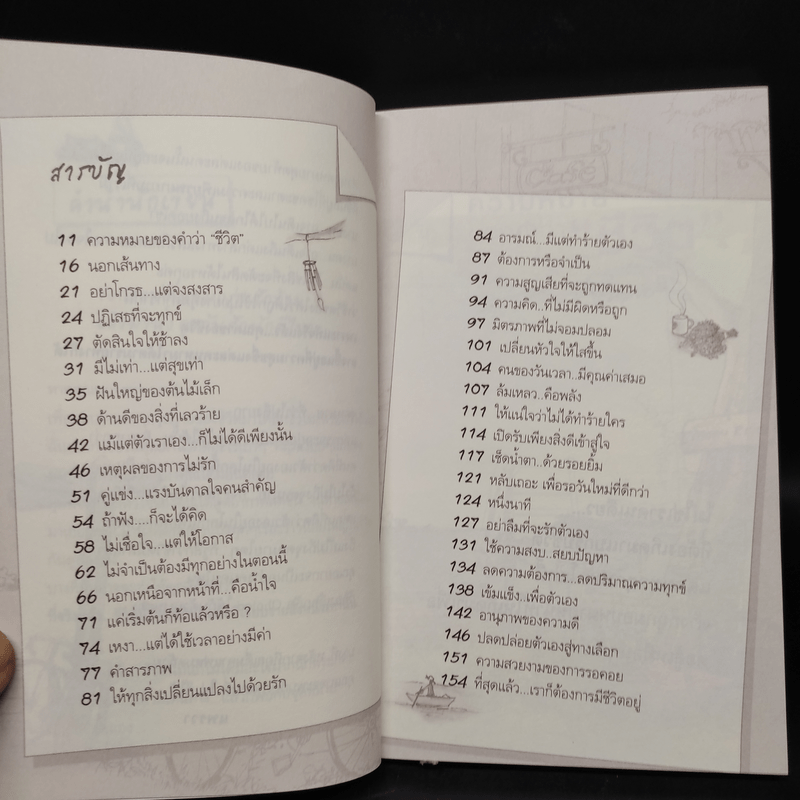 สารบัญ
11 ความหมายของคำว่า "ชีวิต"
16 นอกเส้นทาง
21 อย่าโกรธ...แต่จงสงสาร
24 ปฏิเสธที่จะทุกข์
27 ตัดสินใจให้ช้าลง
31 มีไม่เท่า...แต่สุขเท่า
35 ฝันใหญ่ของต้นไม้เล็ก
38 ด้านดีของสิ่งที่เลวร้าย
42 แม้แต่ตัวเราเอง...ก็ไม่ได้ดีเพียงนั้น
46 เหตุผลของการไม่รัก
51 คู่แข่ง...แรงบันดาลใจคนสำคัญ
54 ถ้าฟัง...ก็จะได้คิด
58 ไม่เชื่อใจ...แต่ให้โอกาส
62 ไม่จำเป็นต้องมีทุกอย่างในตอนนี้
66 นอกเหนือจากหน้าที่...คือน้ำใจ
71 แค่เริ่มต้นก็ท้อแล้วหรือ ?
74 เหงา...แต่ได้ใช้เวลาอย่างมีค่า
77 คำสารภาพ
81 ให้ทุกสิ่งเปลี่ยนแปลงไปด้วยรัก
84 อารมณ์...มีแต่ทำร้ายตัวเอง
87 ต้องการหรือจำเป็น
91 ความสูญเสียที่จะถูกทดแทน
94 ความคิด..ที่ไม่มีผิดหรือถูก
97 มิตรภาพที่ไม่จอมปลอม
101 เปลี่ยนหัวใจให้ใสขึ้น
104 คนของวันเวลา..มีคุณค่าเสมอ
107 ล้มเหลว..คือพลัง
111 ให้แน่ใจว่าไม่ได้ทำร้ายใคร
114 เปิดรับเพียงสิ่งดีเข้าสู่ใจ
117 เช็ดน้ำตา..ด้วยรอยยิ้ม
121 หลับเถอะ เพื่อรอวันใหม่ที่ดีกว่า
124 หนึ่งนาที
127 อย่าลืมที่จะรักตัวเอง
131 ใช้ความสงบ..สยบปัญหา
134 ลดความต้องการ...ลดปริมาณความทุกข์
138 เข้มแข็ง..เพื่อตัวเอง
142 อานุภาพของความดี
146 ปลดปล่อยตัวเองสู่ทางเลือก
151 ความสวยงามของการรอคอย
154 ที่สุดแล้ว...เราก็ต้องการมีชีวิตอยู่